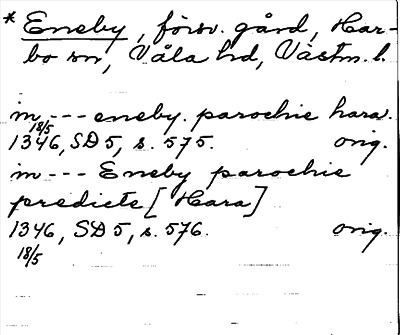 * Eneby, försv. gård, Har-
bo sn, Våla hd, Västm. l.
in --- eneby. parochie hara.
18/5
1346, SD 5, s. 575. orig.
in --- Eneby parochie
predicte [Hara]
1346, SD 5, s. 576. orig.
18/5